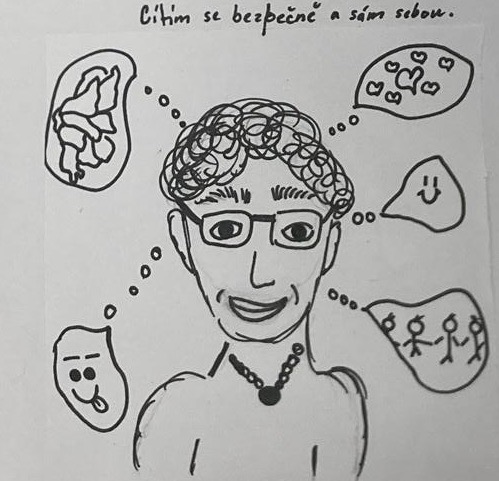 Cítím se bezpečně a sám sebou.